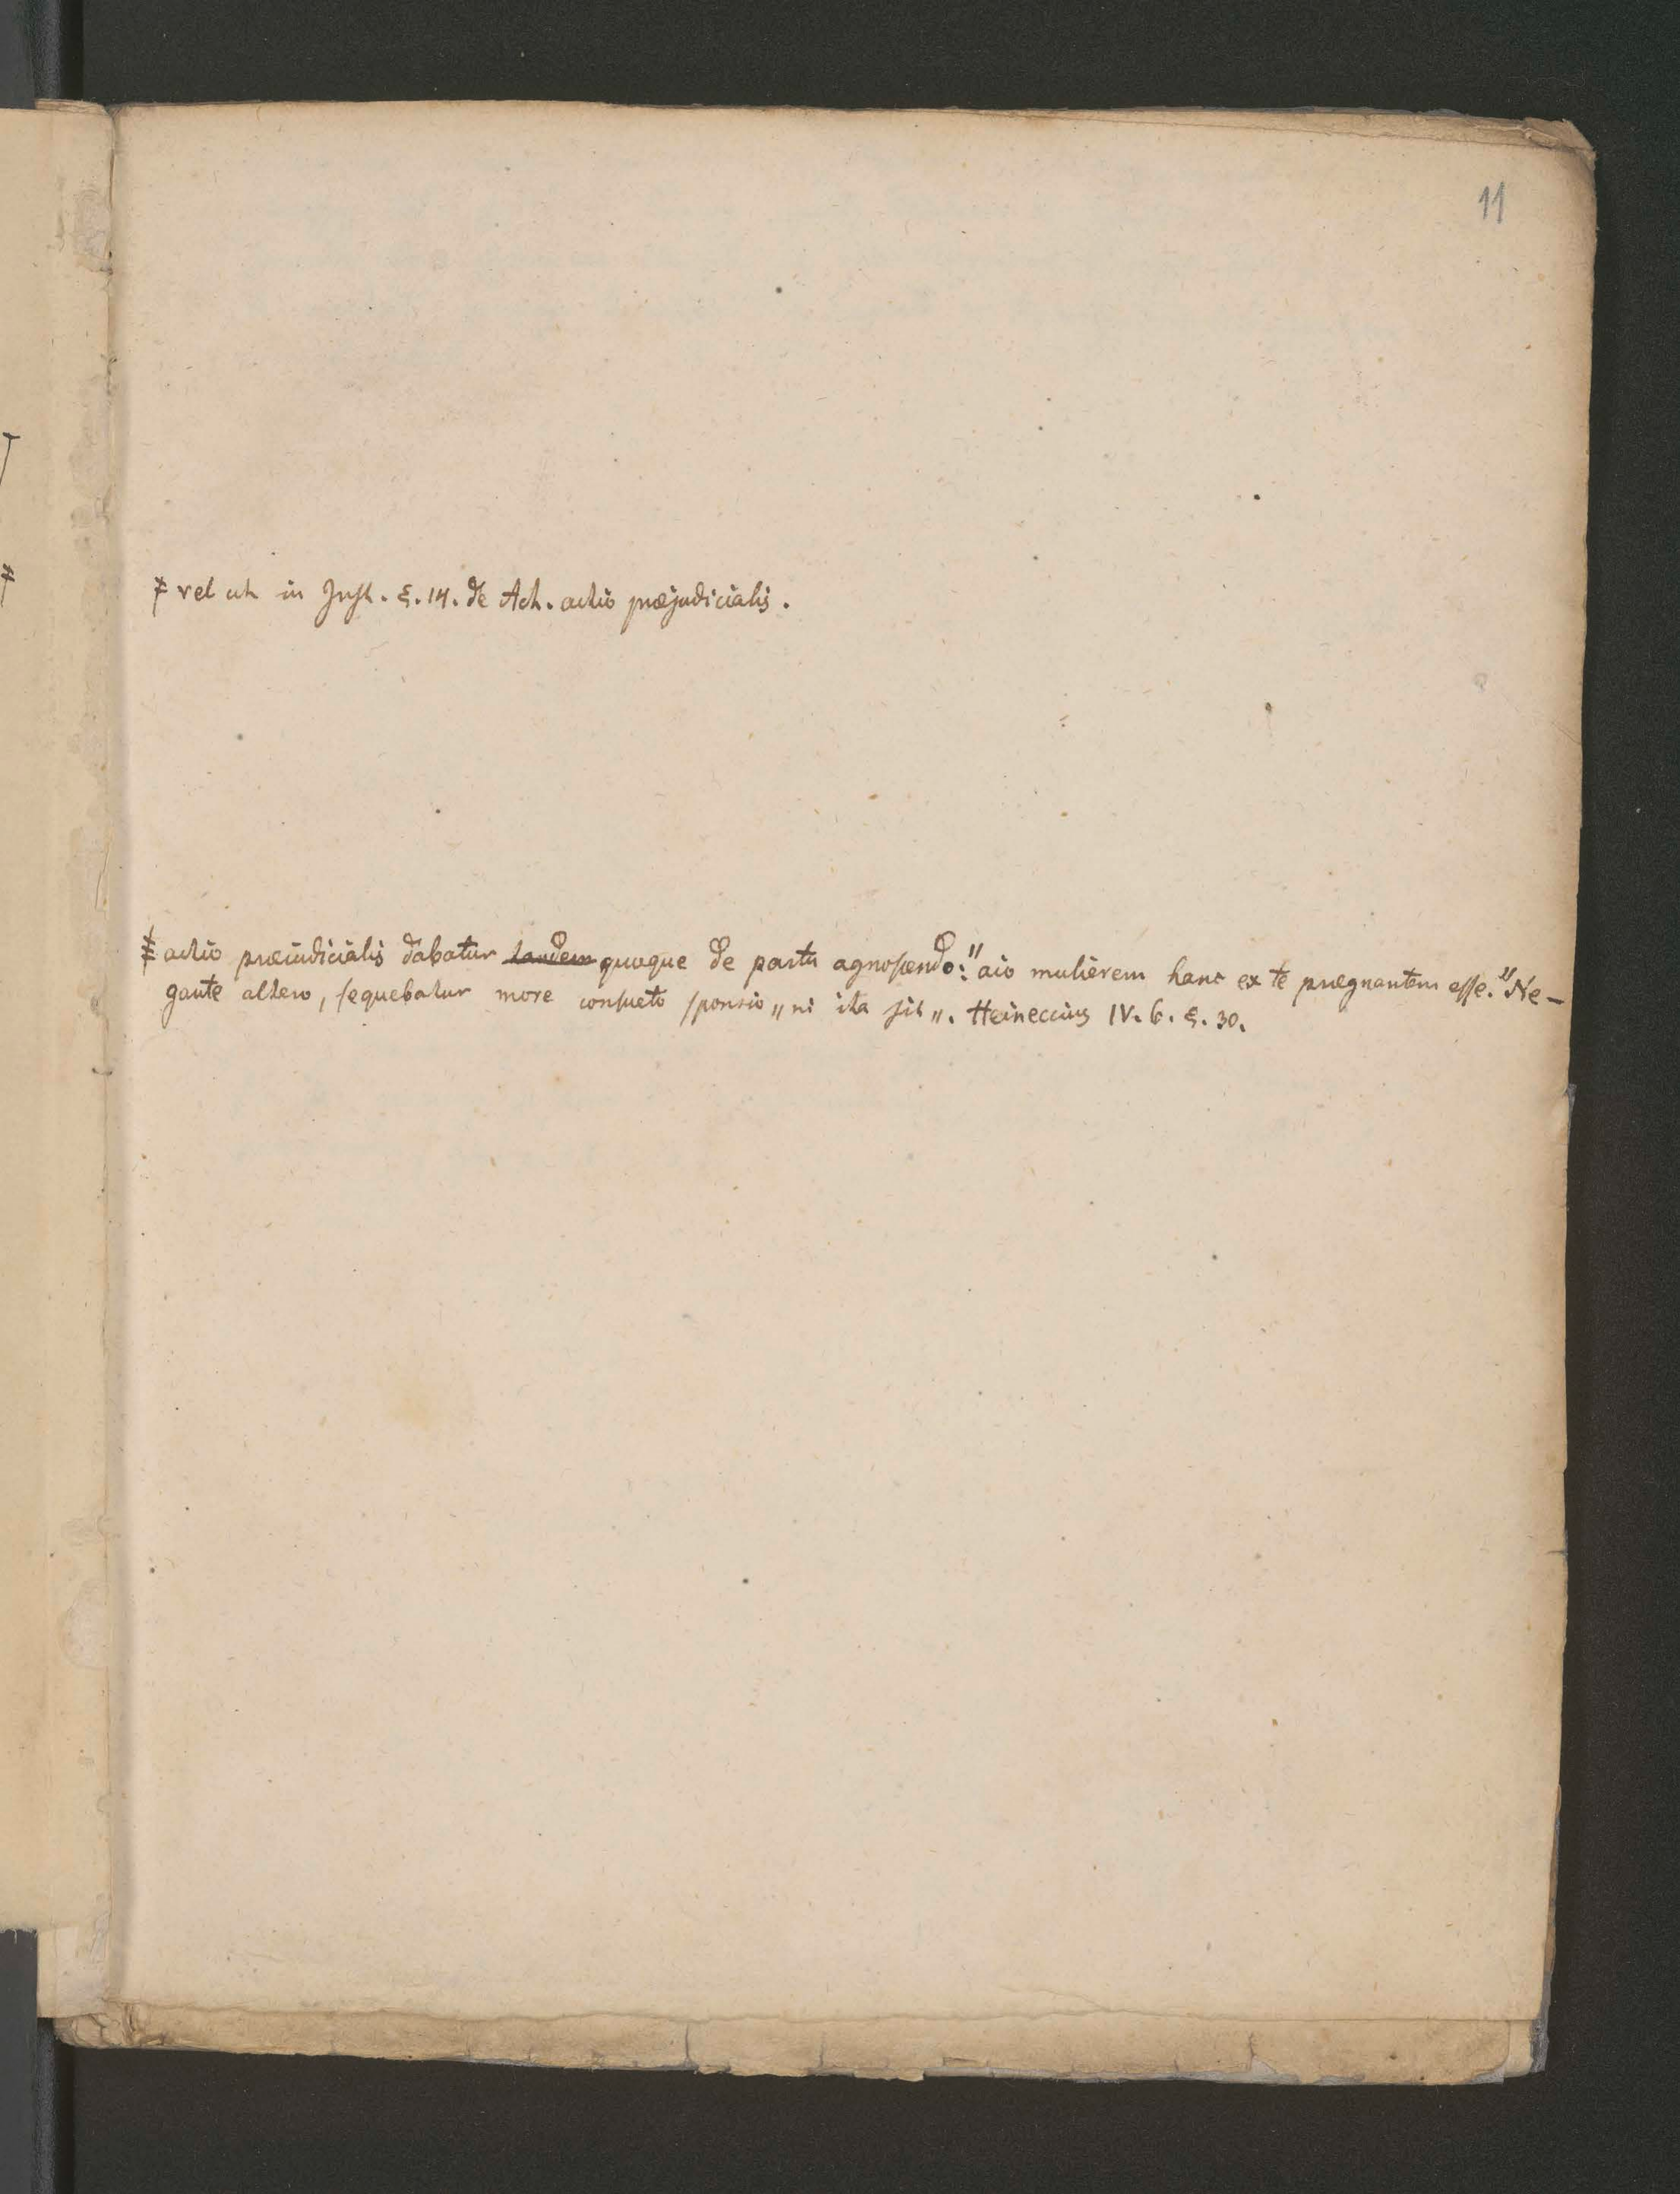 11
ⵜ vel ut in Inst. §. 14. de Act. actio præjudicialis.
ⵜ actio præiudicialis dabatur tandem quoque de partu agnoscendo: "aio mulierem hanc ex te prægnantem esse." Ne-
gante altero, sequebatur more consueto sponsio „ni ita sit„. Heineccius IV. 6. §. 30.